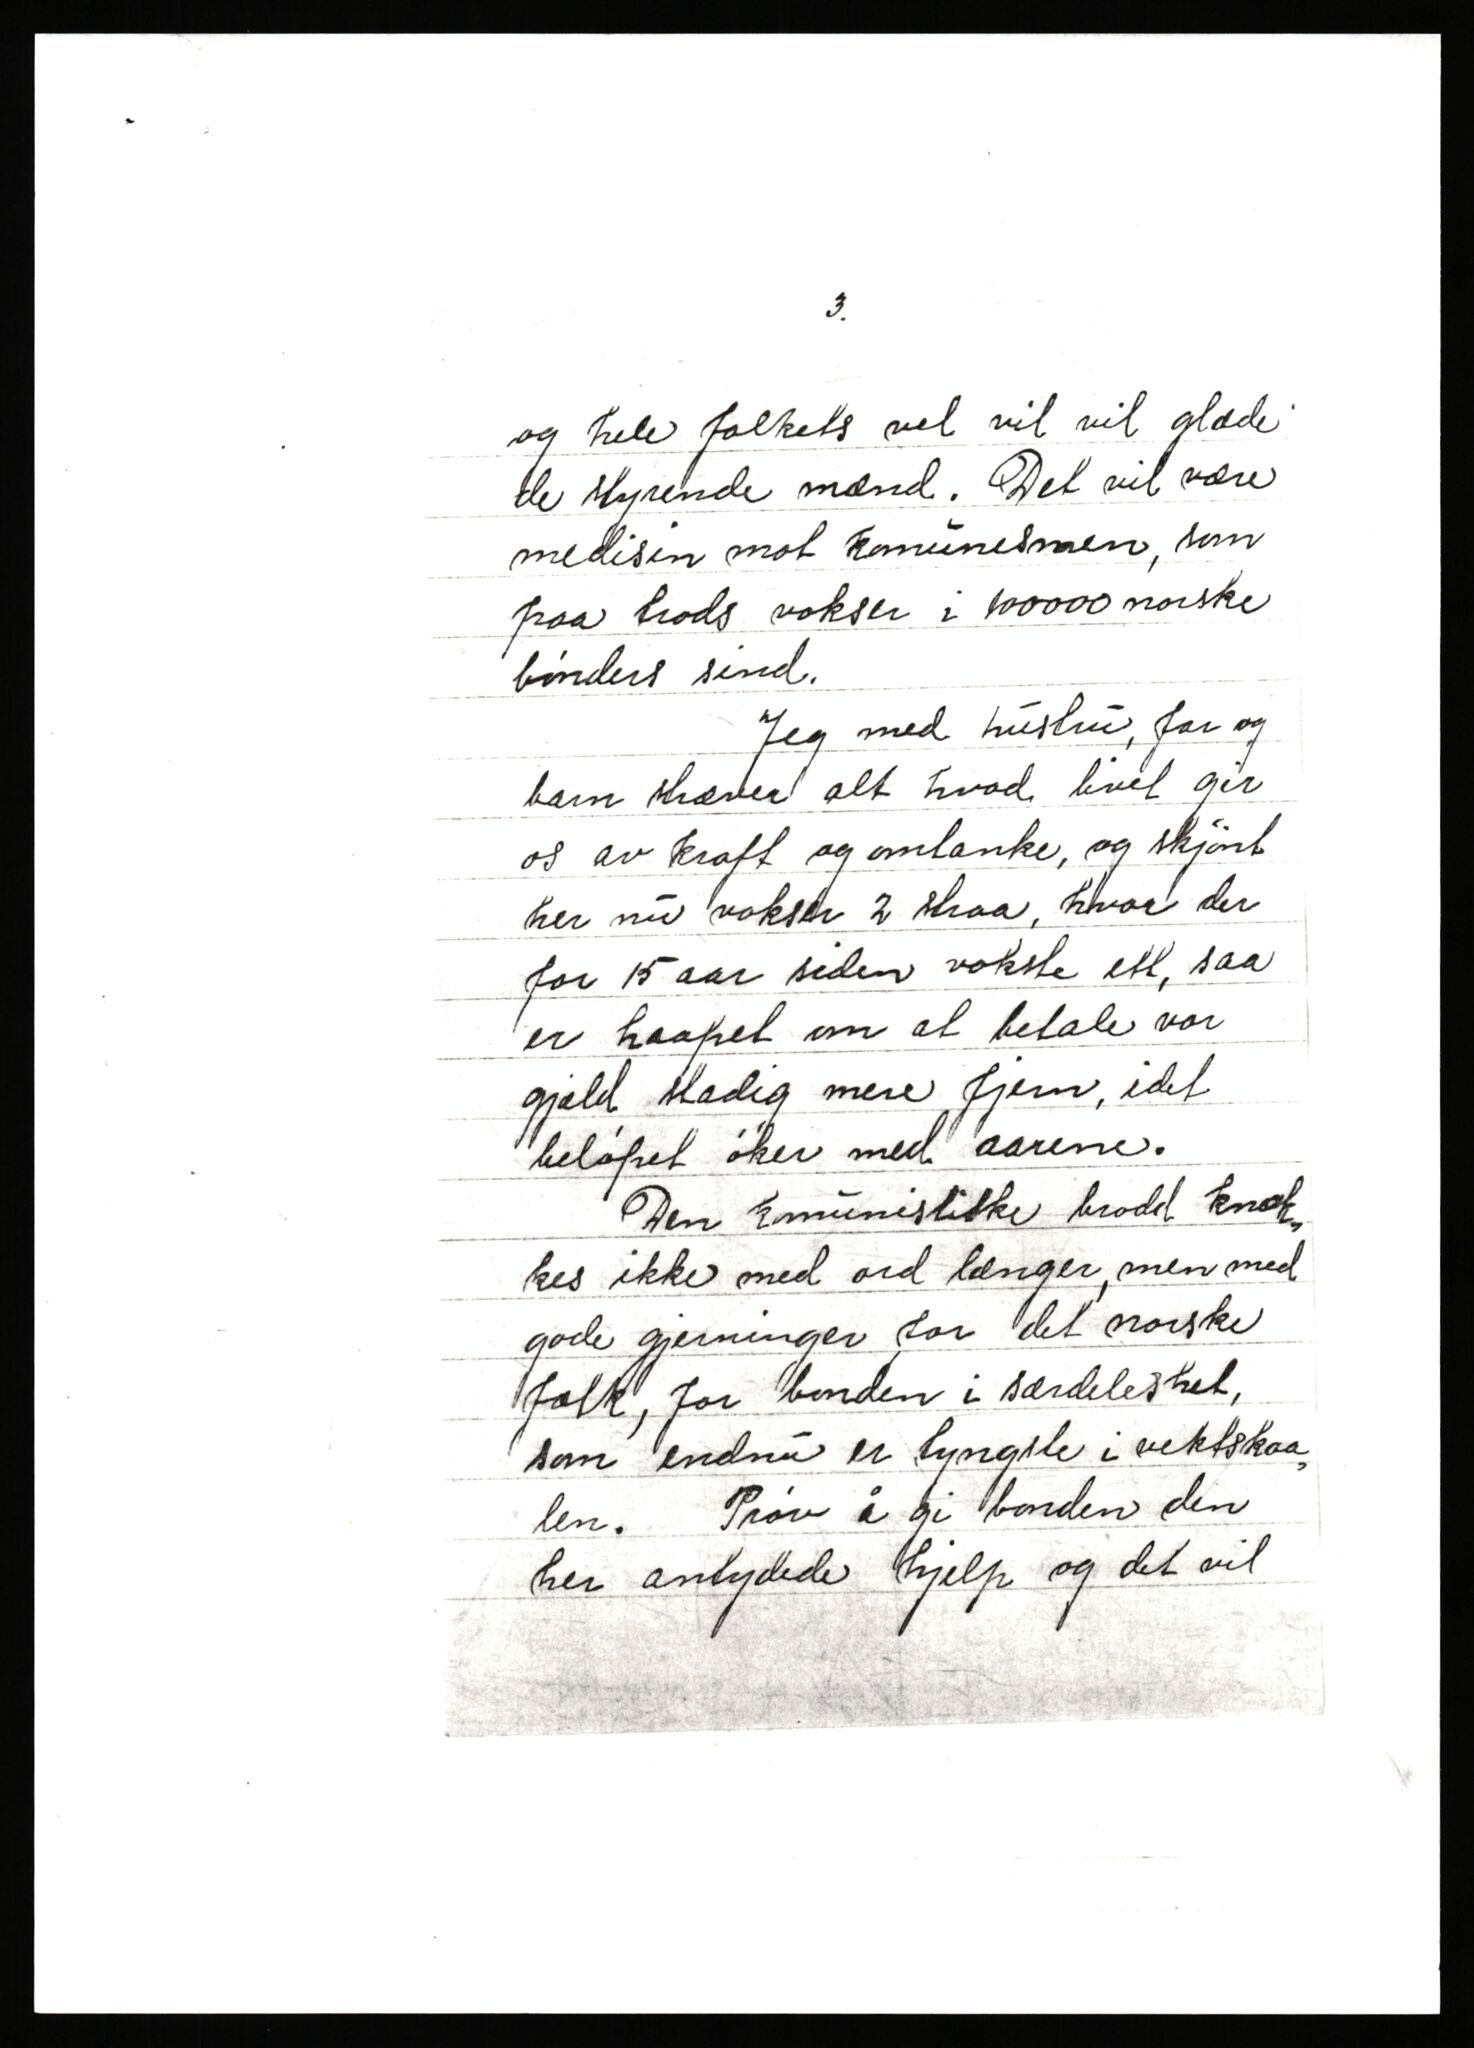 3.
og hele folkets vel vil vil glæde
de styrende mænd. Det vil være
medisin mot komunesmen, som
paa trods vokser i 100000 norske
bønders sind.
Jeg med hustru, far og
barn stræver alt hvad livet gir
os av kraft og omtanke, og skjönt
her nu vokser 2 straa, hvor der
for 15 aar siden vokste ett, saa
er haapet om at betale vor
gjæld stadig mere fjern, idet
beløpet øker med aarene.
Den komunistiske brodd knæk-
kes ikke med ord længer, men med
gode gjerninger for det norske
folk, for bonden i særdeleshet,
som endnu er tyngste i vektskaa-
len. Prøv å gi bonden den
her antydede hjelp og det vil